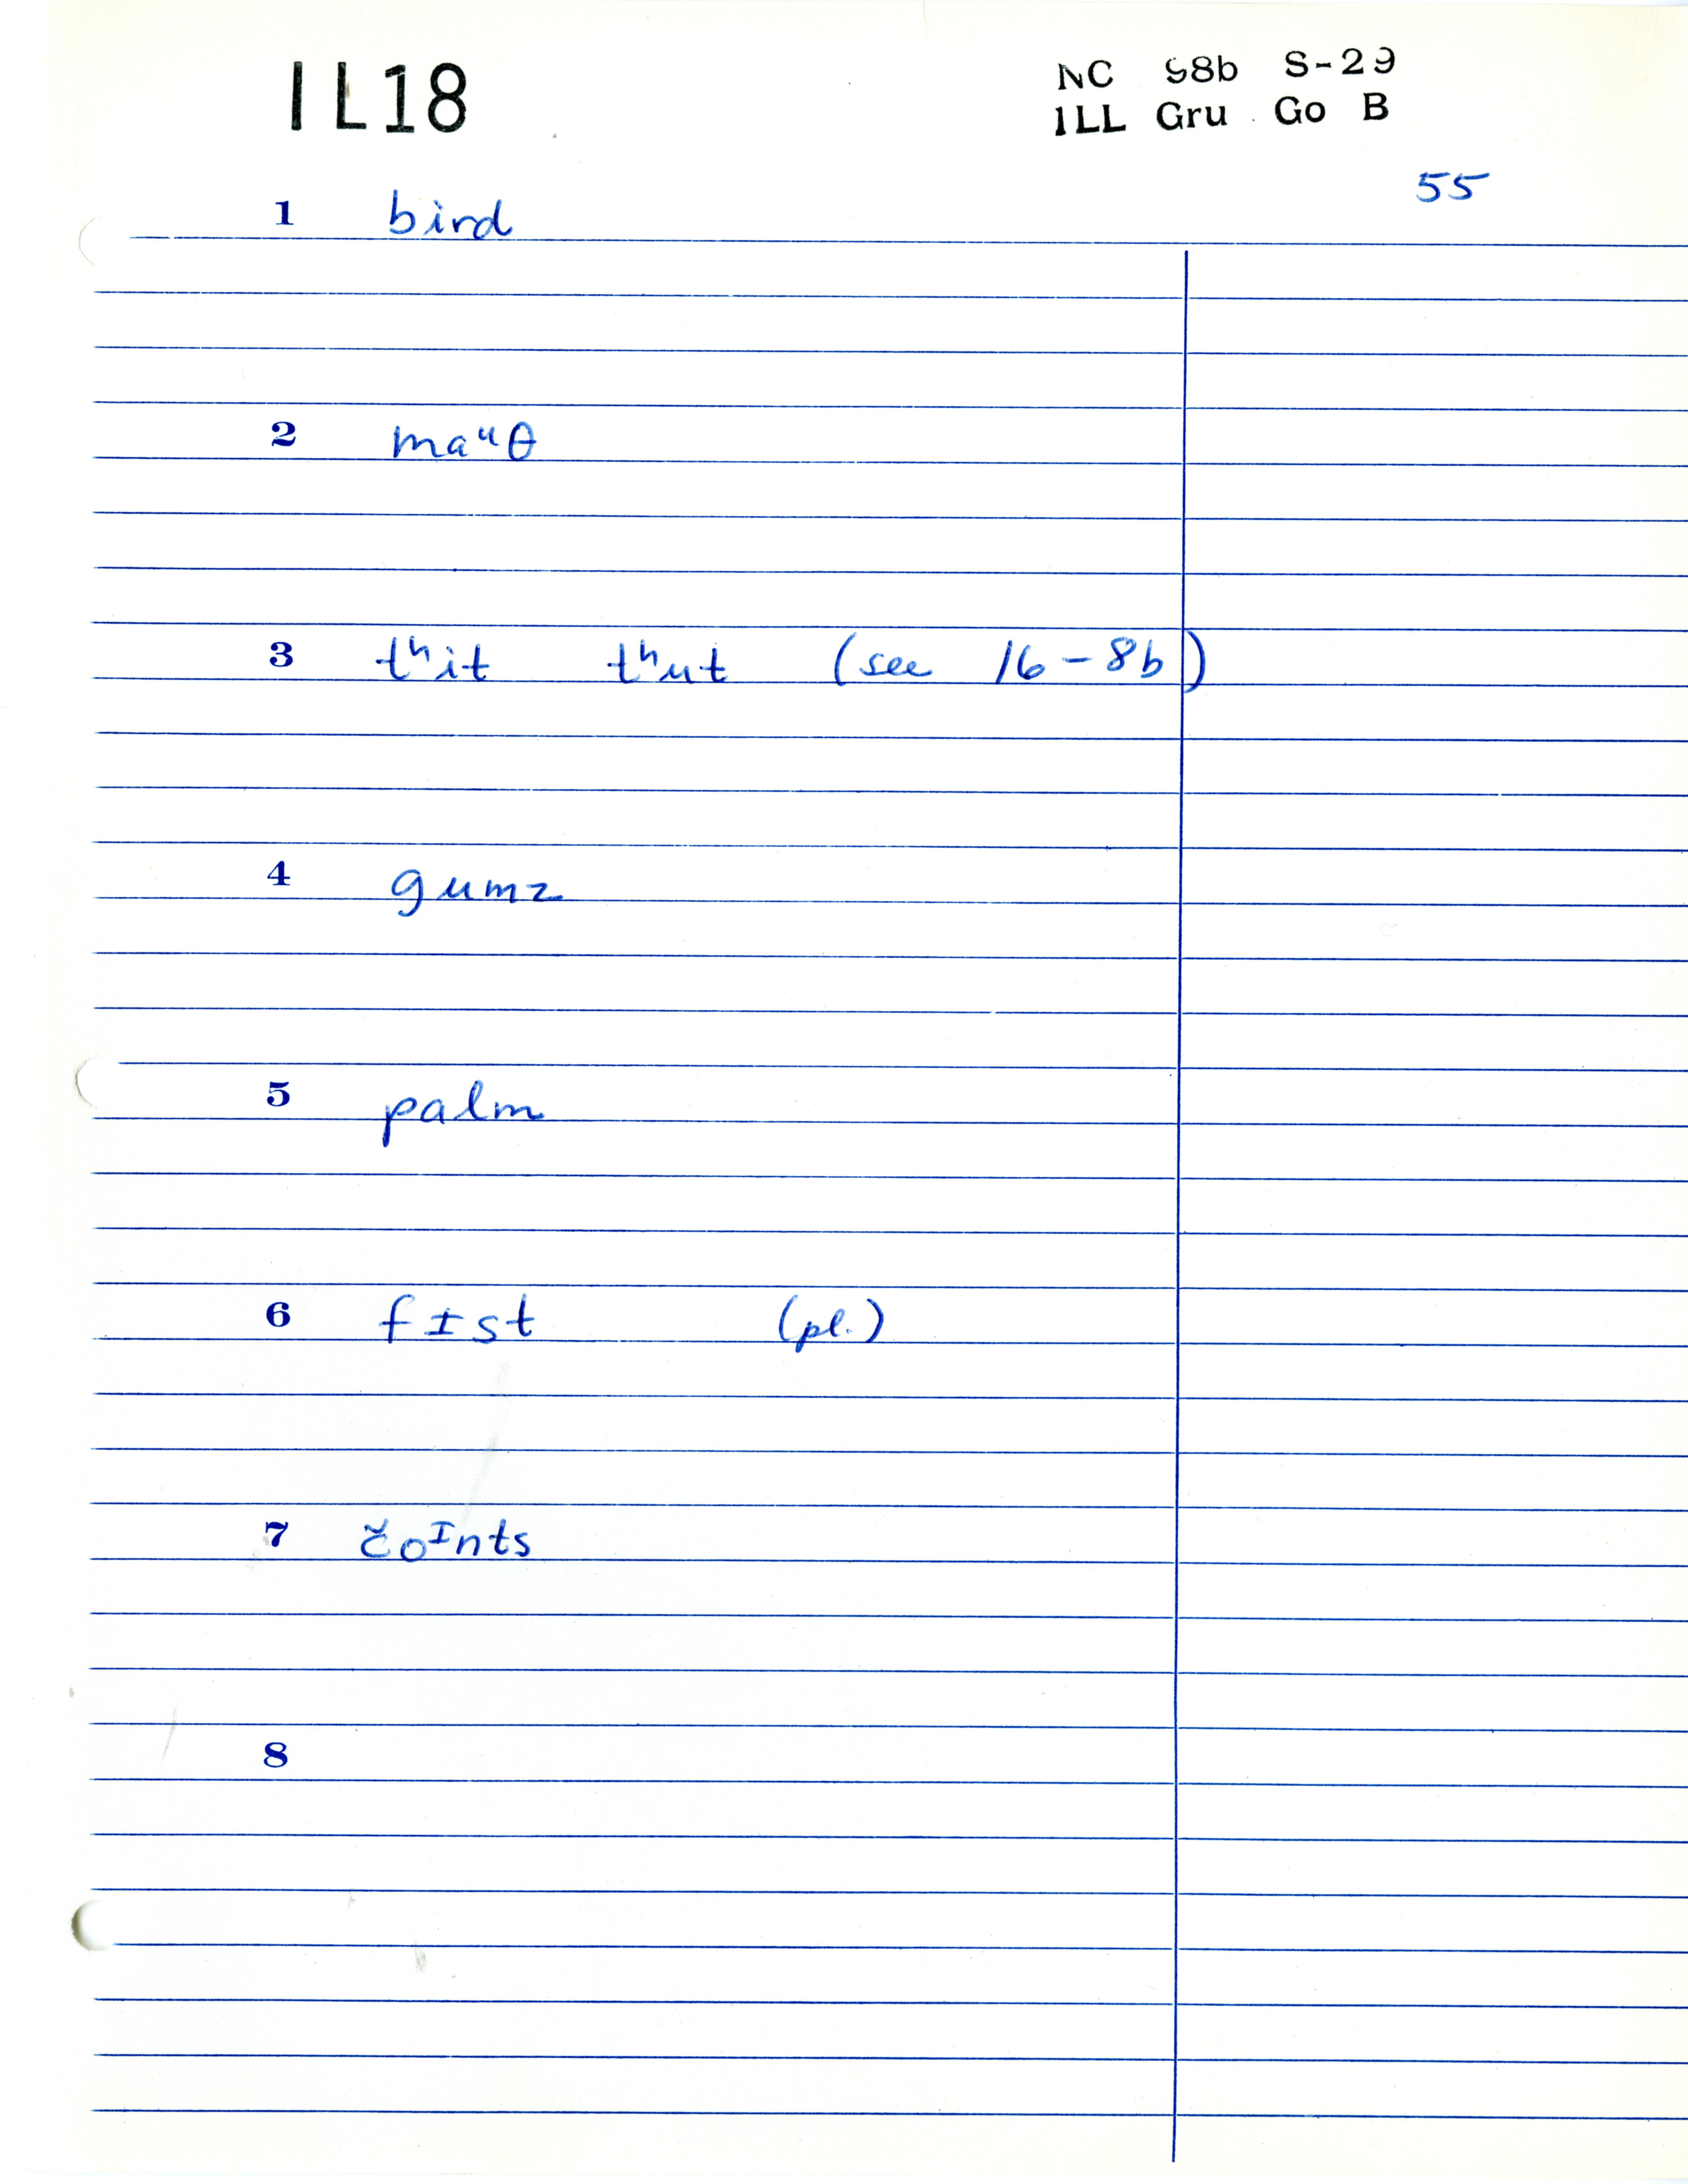 IL18
NC 98b S-29
ILL Gru Go B
55
1 bird
2 maᵘθ
3 tʰit tʰut (see 16-8b)
4 gumz
5 palm
6 fɪst (pl.)
7 čoᶦnts
8